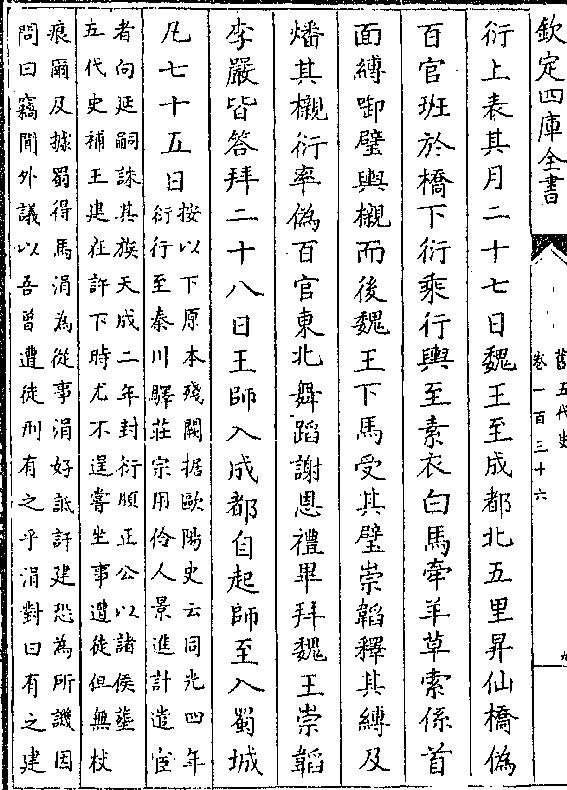 欽定四庫全書
舊五代史
卷一百三十六
九
衍上表其月二十七日魏王至成都北五里昇仙橋偽
百官班於橋下衍乘行輿至素衣白馬牽羊草索係首
面縛啣璧輿櫬而後魏王下馬受其璧崇韜釋其縛及
燔其櫬衍率偽百官東北舞蹈謝恩禮畢拜魏王崇韜
李嚴皆答拜二十八日王師入成都自起師至入蜀城
凡七十五日
按以下原本殘闕据歐陽史云同光四年
衍行至秦川驛莊宗用伶人景進計遣宦
者向延嗣誅其族天成二年封衍順正公以諸侯塟
五代史補王建在許下時尤不逞嘗坐事遭徒但無杖
痕爾及據蜀得馬涓為從事涓好詆訐建恐為所譏因
問曰竊聞外議以吾曾遭徒刑有之乎涓對曰有之建